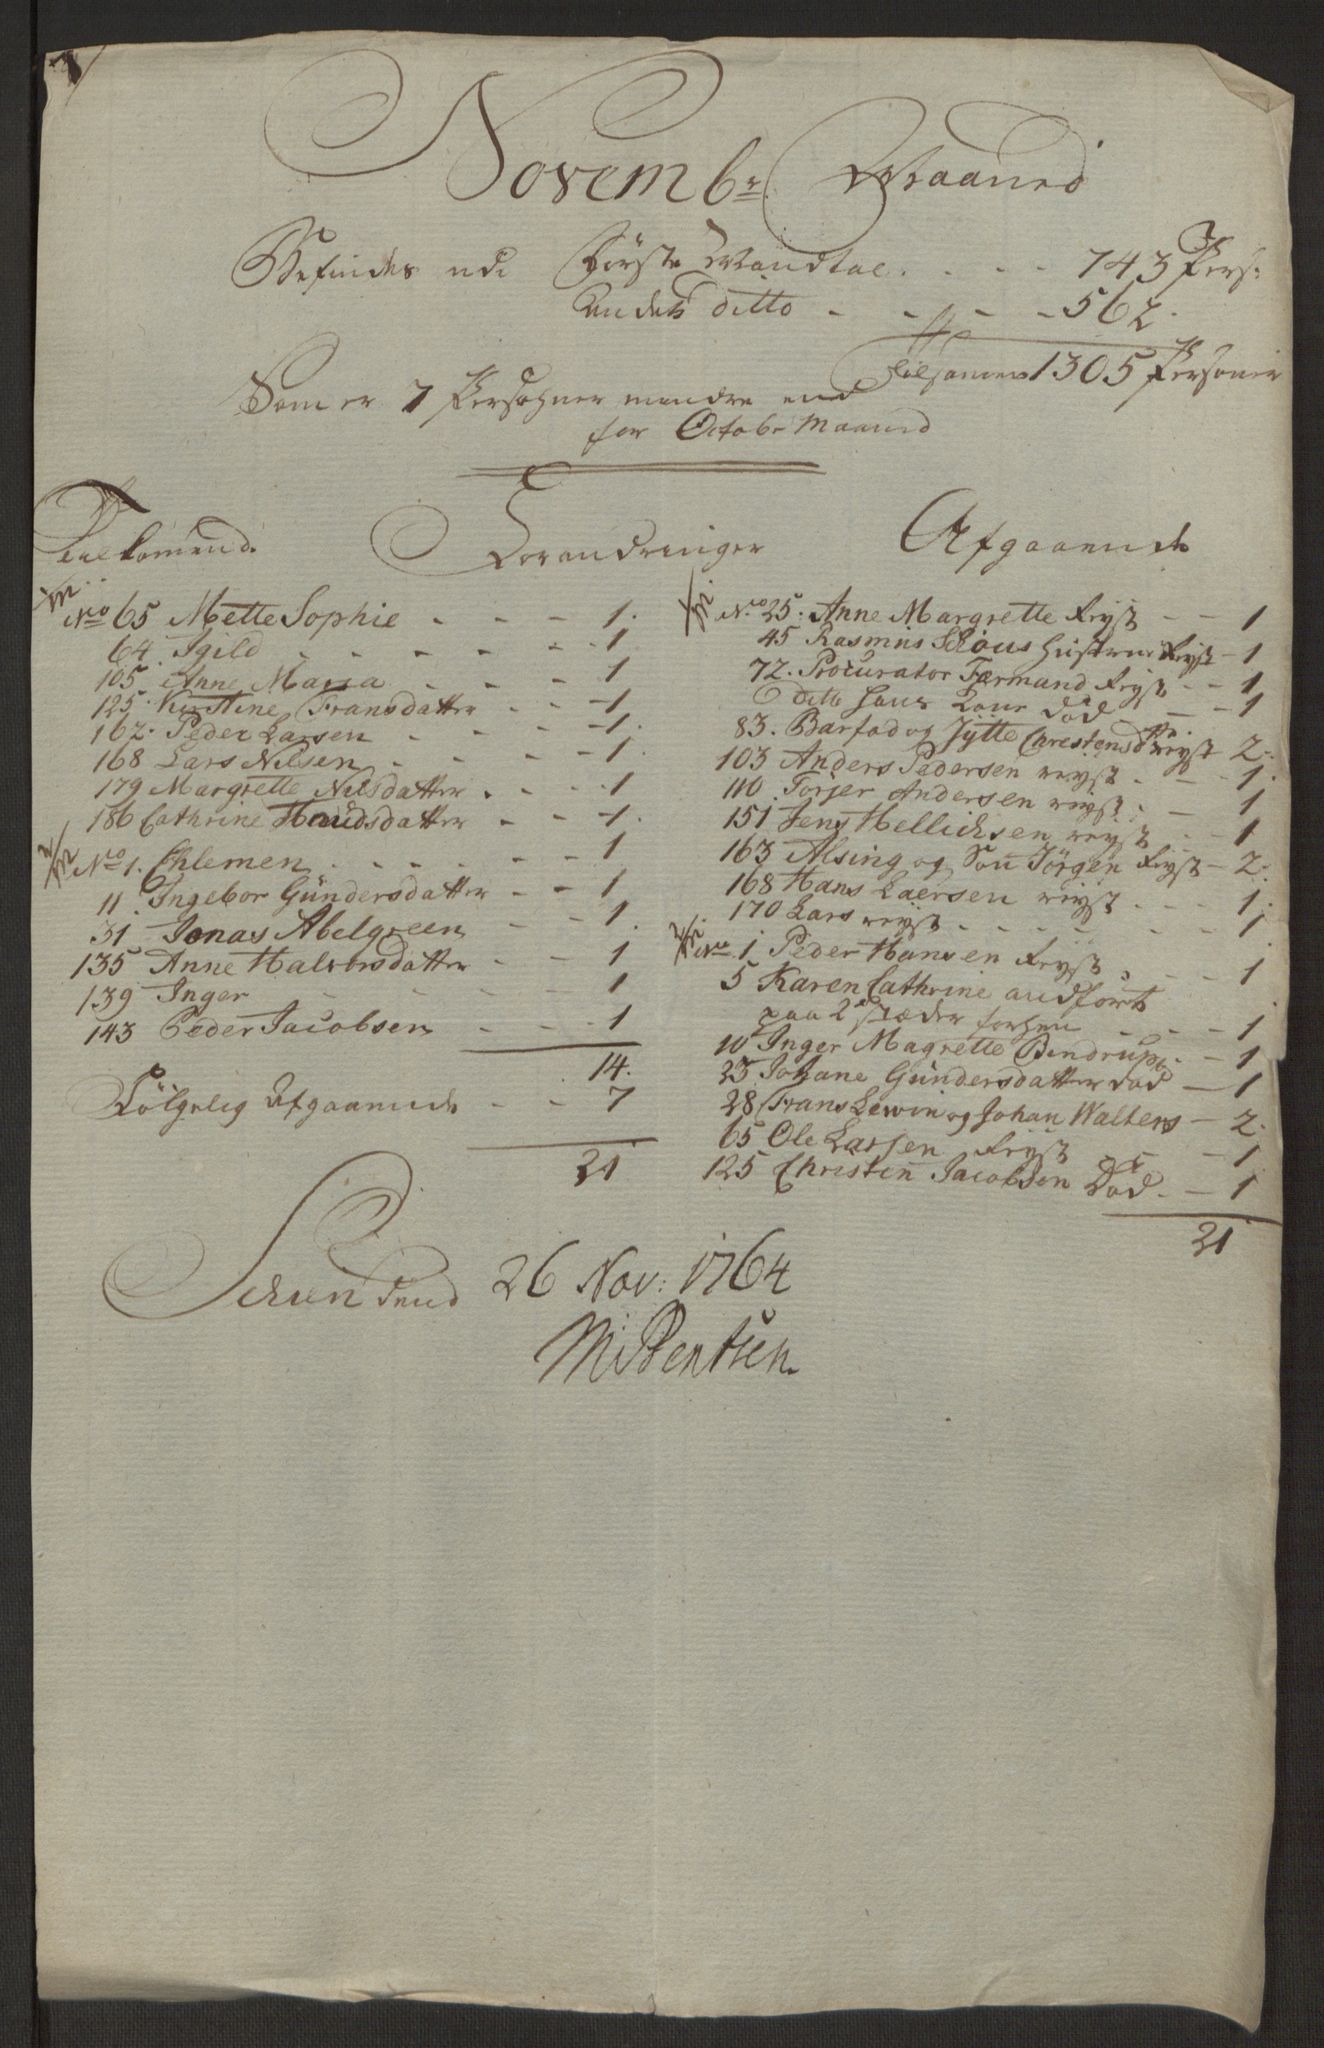 Novembr Maaned
Befindes udi Første Mandtal - - - 743 Pers:
Andet ditto - - - - 562.
Tilsamen 1305 Personer
Som er 7 Persohner mindre end
for Octobr Maaned
Tilkomend. Forandringer Afgaaende
No 65 Mette Sophie - - - 1.
64 Igild - - - - - 1
105 Anne Maria - - - 1
125 Kirstine Fransdatter - - 1
162. Peder Larsen - - - - 1.
168 Lars Nilsen - - - - 1.
179 Margrette Nilsdatter - - - 1
186 Cathrine Knudsdatter - - - 1.
No 1. Chlemen - - - - - 1
11 Ingebor Gündersdatter - - 1
31 Jonas Abelgreen - - 1.
135 Anne Halvorsdatter - - - 1
139 Inger - - - - - 1
143 Peder Jacobsen - - - 1
14.
Følgelig Afgaaende - - 7
21
No. 25. Anne Margrette Reyst - - 1
45 Rasmus Schous Hustrue Reyst - 1
72. Procurator Formand Reyst - - 1
ditto hans Kone død - - 1
83. Barfod og Jÿtte Carestensdttr reyst 2.
103 Anders Pedersen reyst - - - 1.
110 Torjer Andersen reyst - - 1
151 Jens Hellichsen reyst - - 1
163 Alsing og Søn Jörgen Reyst - 2.
168 Hans Laersen reyst - - - 1.
170 Lars reyst - - - - - - 1
No 1 Peder Hansen Reyst - - - 1
5 Karen Cathrine andført
paa 2 stæder forhen - - - - 1
10 Inger Magrette Bendrup - - 1
23 Johane Gündersdatter død - 1
28 Frans Lewin og Johan Walters - 2.
65 Ole Larsen Reyst - - - 1
125 Christen Jacobsen Død. - 1
21
Scheen den 26 Nov: 1764
M Bentsen.